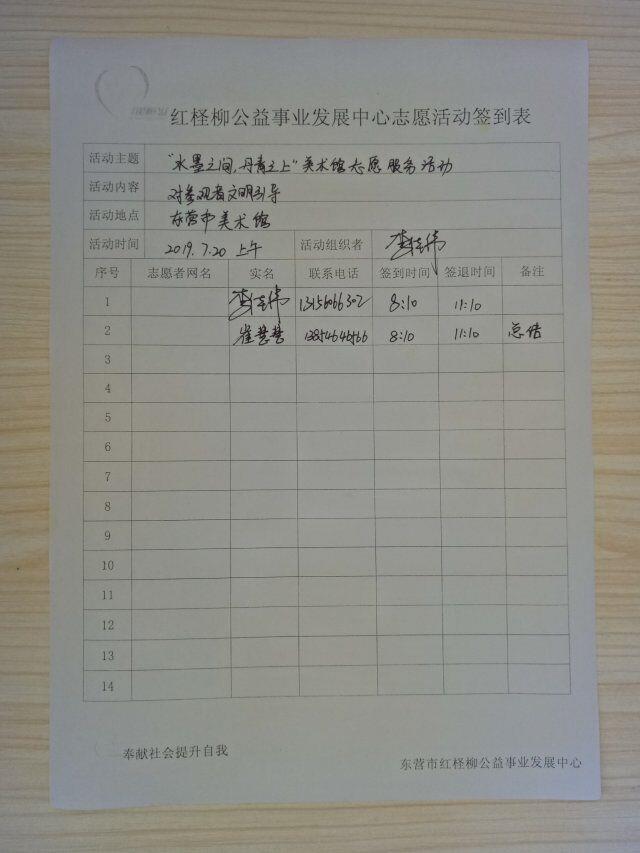 红柽柳公益事业发展中心志愿活动签到表
活动主题 "水墨之间,丹青之上"美术馆志愿服务活动
活动内容 对参观者文明引导
活动地点 东营市美术馆
活动时间 2019.7.20 上午 活动组织者
序号 志愿者网名 实名 联系电话 签到时间 签退时间 备注
1 13156066302 8:10 11:10
2 崔慧慧 8:10 11:10 总结
3
4
5
6
7
8
9
10
11
12
13
14
奉献社会提升自我
东营市红柽柳公益事业发展中心